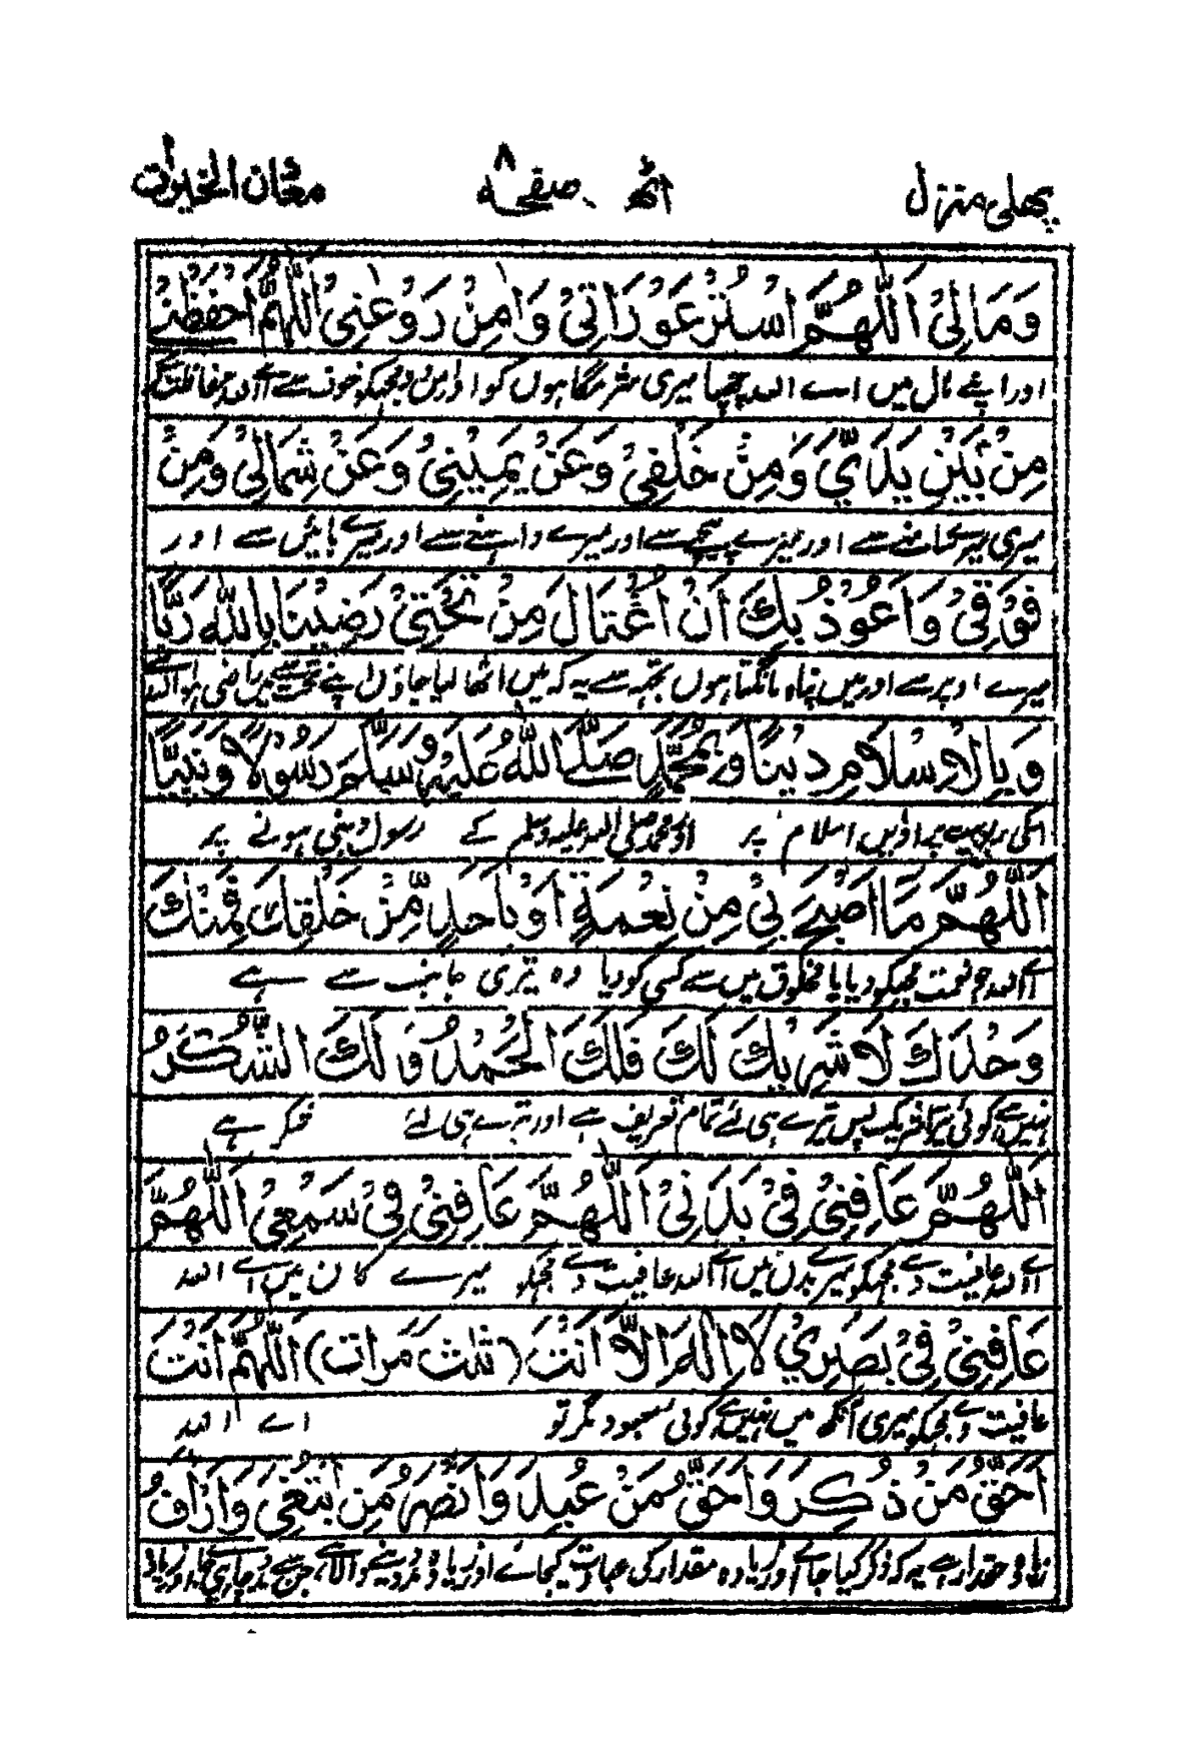 پھلی منزل آٹھ صفحہ ۸ معدن الخیرات
وَمَالِیْ اَللّٰهُمَّ اسْتُرْ عَوْرَاتِیْ وَاٰمِنْ رَوْعٰتِیْ اَللّٰهُمَّ احْفَظْنِیْ
اور اپنے مال میں اے اللہ چھپا میری شرمگاہوں کو اور امن دے مجھکو خوف سے اے اللہ حفاظت کر
مِنْ بَیْنِ یَدَیَّ وَمِنْ خَلْفِیْ وَعَنْ یَمِیْنِیْ وَعَنْ شِمَالِیْ وَمِنْ
میری میرے سامنے سے اور میرے پیچھے سے اور میرے داہنے سے اور میرے بائیں سے اور
فَوْقِیْ وَاَعُوْذُ بِكَ اَنْ اُغْتَالَ مِنْ تَحْتِیْ رَضِیْنَا بِاللّٰهِ رَبًّا
میرے اوپر سے اور میں پناہ مانگتا ہوں تجھ سے یہ کہ میں اٹھا لیا جاؤں اپنے تحت سے میں راضی ہوا اللہ سے
وَبِالْاِسْلَامِ دِیْنًا وَّبِمُحَمَّدٍ صَلَّی اللّٰهُ عَلَیْهِ وَسَلَّمَ رَسُوْلًا وَّنَبِیًّا
اسکی رب ہونے پر اور دین اسلام پر اور محمد صلی اللہ علیہ وسلم کے رسول و نبی ہونے پر
اَللّٰهُمَّ مَا اَصْبَحَ بِیْ مِنْ نِعْمَةٍ اَوْ بِاَحَدٍ مِّنْ خَلْقِكَ فَمِنْكَ
اے اللہ جو نعمت مجھکو دیا یا مخلوق میں سے کسی کو دیا وہ تیری جانب سے ہے
وَحْدَكَ لَا شَرِیْكَ لَكَ فَلَكَ الْحَمْدُ وَلَكَ الشُّكْرُ
نہیں ہے کوئی تیرا شریک پس تیرے ہی لئے تمام تعریف ہے اور تیرے ہی لئے شکر ہے
اَللّٰهُمَّ عَافِنِیْ فِیْ بَدَنِیْ اَللّٰهُمَّ عَافِنِیْ فِیْ سَمْعِیْ اَللّٰهُمَّ
اے اللہ عافیت دے مجھکو میرے بدن میں اے اللہ عافیت دے مجھکو میرے کان میں اے اللہ
عَافِنِیْ فِیْ بَصَرِیْ لَا اِلٰهَ اِلَّا اَنْتَ (ثلٰث مَرات) اَللّٰهُمَّ اَنْتَ
عافیت دے مجھکو میری آنکھ میں نہیں ہے کوئی معبود مگر تو اے اللہ
اَحَقُّ مَنْ ذُكِرَ وَاَحَقُّ مَنْ عُبِدَ وَاَنْصَرُ مَنِ ابْتُغِیَ وَاَرْاَفُ
زیادہ حقدار ہے یہ کہ ذکر کیا جائے اور زیادہ مقدار کی عبادت کیجائے اور زیادہ مدد دینے والا ہے جس سے مدد چاہی جائے اور زیادہ